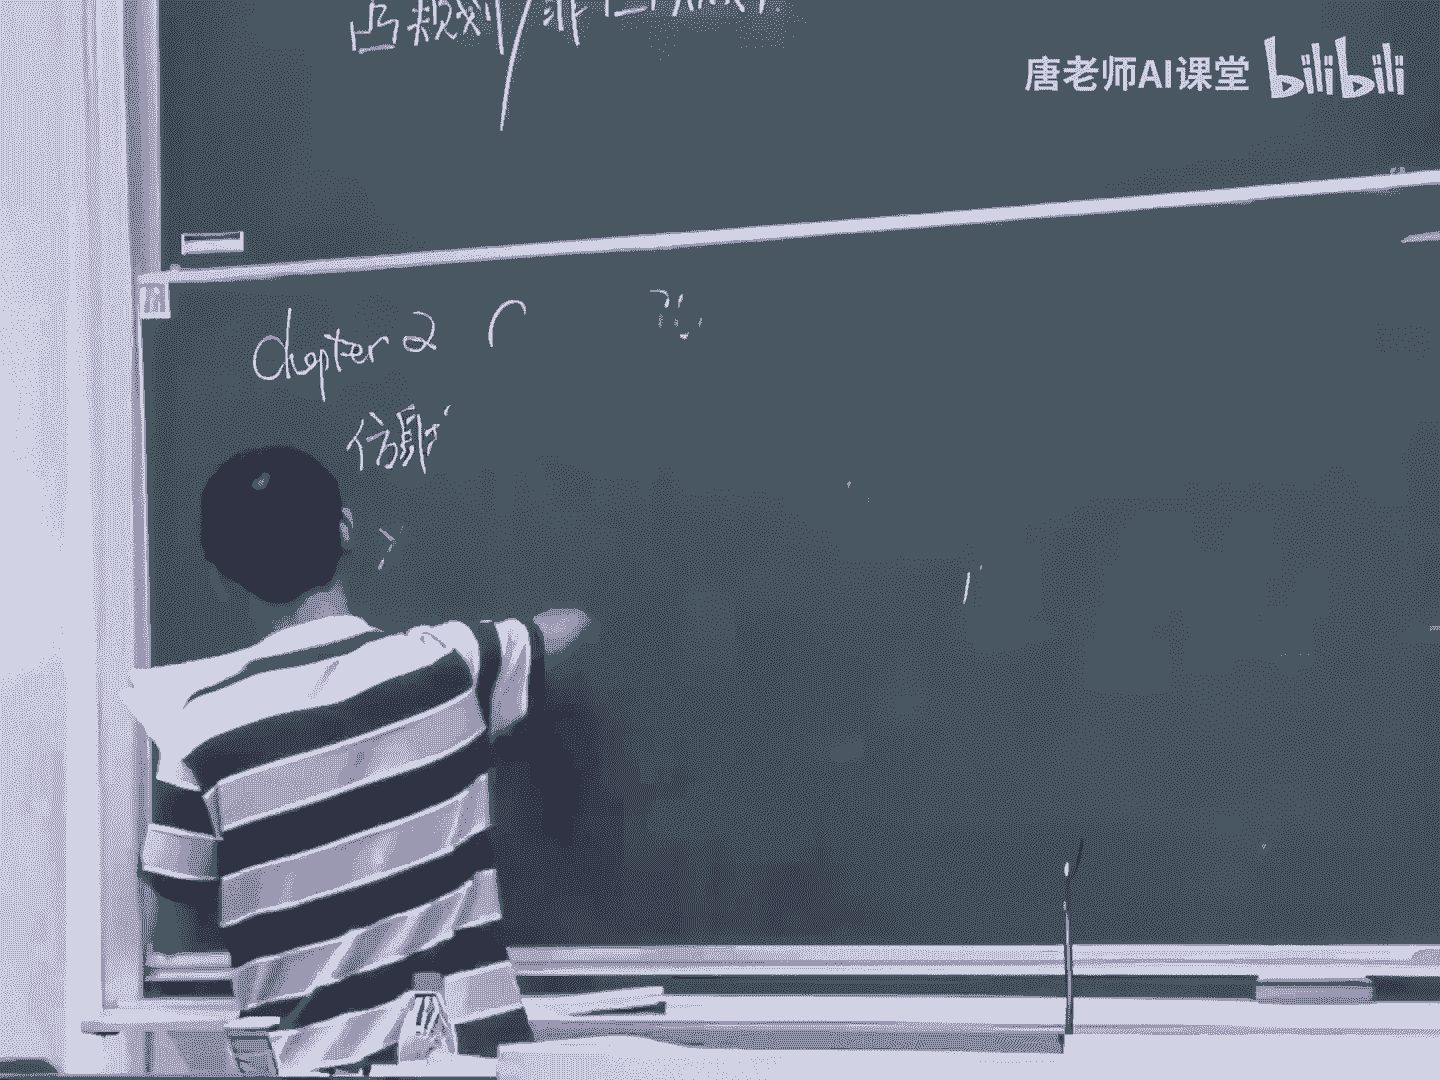 凸规划/非凸规划.
唐老师AI课堂 bilibili
Chapter 2
仿射